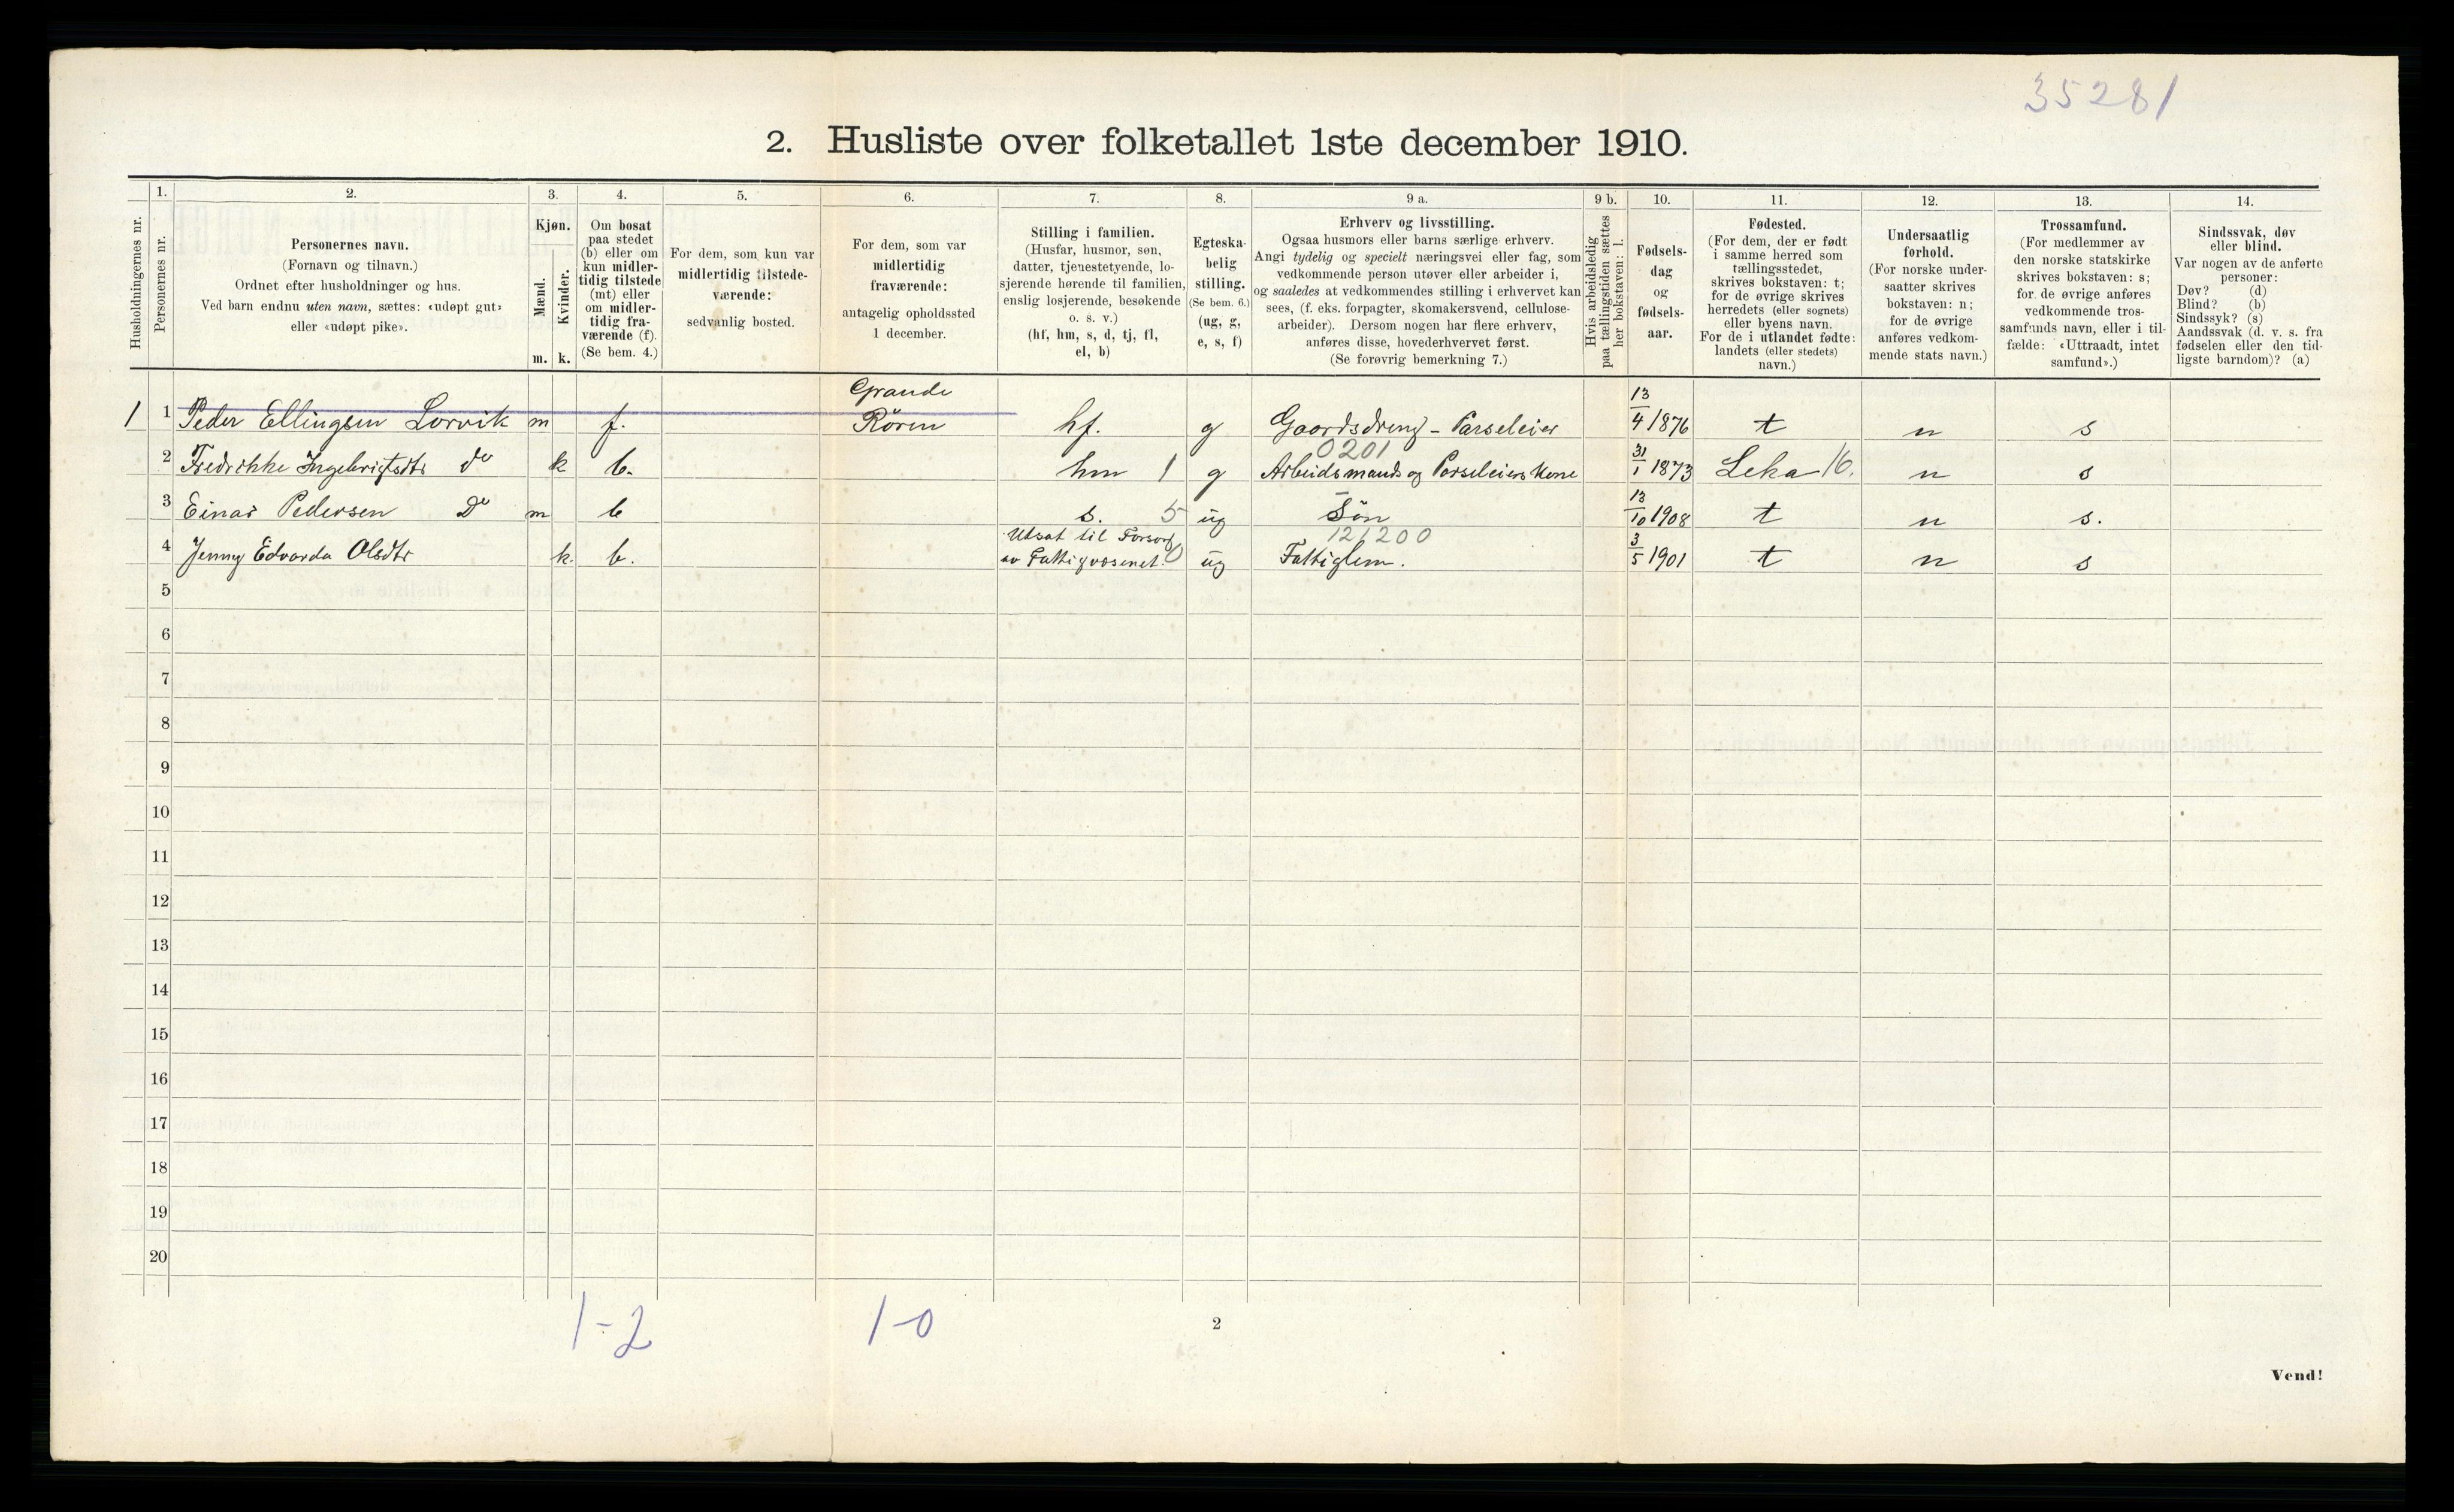 35281
2. Husliste over folketallet 1ste december 1910.
Husholdningernes nr.
1.
Personernes nr.
2.
Personernes navn.
(Fornavn og tilnavn.)
Ordnet efter husholdninger og hus.
Ved barn endnu uten navn, sættes: «udøpt gut»
eller «udøpt pike».
3.
Kjøn.
Mænd.
Kvinder.
m. k.
4.
Om bosat
paa stedet
(b) eller om
kun midler-
tidig tilstede
(mt) eller
om midler-
tidig fra-
værende (f).
(Se bem. 4.)
5.
For dem, som kun var
midlertidig tilstede-
værende:
sedvanlig bosted.
6.
For dem, som var
midlertidig
fraværende:
antagelig opholdssted
1 december.
7.
Stilling i familien.
(Husfar, husmor, søn,
datter, tjenestetyende, lo-
sjerende hørende til familien,
enslig losjerende, besøkende
o. s. v.)
(hf, hm, s, d, tj, fl,
el, b)
8.
Egteska-
belig
stilling.
(Se bem. 6.)
(ug, g,
e, s, f)
9 a.
Erhverv og livsstilling.
Ogsaa husmors eller barns særlige erhverv.
Angi tydelig og specielt næringsvei eller fag, som
vedkommende person utøver eller arbeider i,
og saaledes at vedkommendes stilling i erhvervet kan
sees, (f. eks. forpagter, skomakersvend, cellulose-
arbeider). Dersom nogen har flere erhverv,
anføres disse, hovederhvervet først.
(Se forøvrig bemerkning 7.)
9 b.
Hvis arbeidsledig
paa tællingstiden sættes
her bokstaven: l.
10.
Fødsels-
dag
og
fødsels-
aar.
11.
Fødested.
(For dem, der er født
i samme herred som
tællingsstedet,
skrives bokstaven: t;
for de øvrige skrives
herredets (eller sognets)
eller byens navn.
For de i utlandet fødte:
landets (eller stedets)
navn.)
12.
Undersaatlig
forhold.
(For norske under-
saatter skrives
bokstaven: n;
for de øvrige
anføres vedkom-
mende stats navn.)
13.
Trossamfund.
(For medlemmer av
den norske statskirke
skrives bokstaven: s;
for de øvrige anføres
vedkommende tros-
samfunds navn, eller i til-
fælde: «Uttraadt, intet
samfund».)
14.
Sindssvak, døv
eller blind.
Var nogen av de anførte
personer:
Døv? (d)
Blind? (b)
Sindssyk? (s)
Aandssvak (d. v. s. fra
fødselen eller den tid-
ligste barndom)? (a)
Grande
1 1 Peder Ellingsen Lorvik m f. Røren hf. g Gaardsdreng - Parseleier 13/4 1876 t n s
0201
2 Fredrikke Ingebrigtsdtr do k b. hm 1 g Arbeidsmands og Parseleiers Kone 31/1 1873 Leka 16. n s
3 Einar Pedersen Do m b s. 5 ug Søn 13/10 1908 t n s.
Utsat til Forsorg 121200
4 Jenny Edvarda Olsdtr k. b. av Fattigvæsenet. 0 ug Fattiglem. 3/5 1901 t n s
5
6
7
8
9
10
11
12
13
14
15
16
17
18
19
20
1-2 1-0
2
Vend!